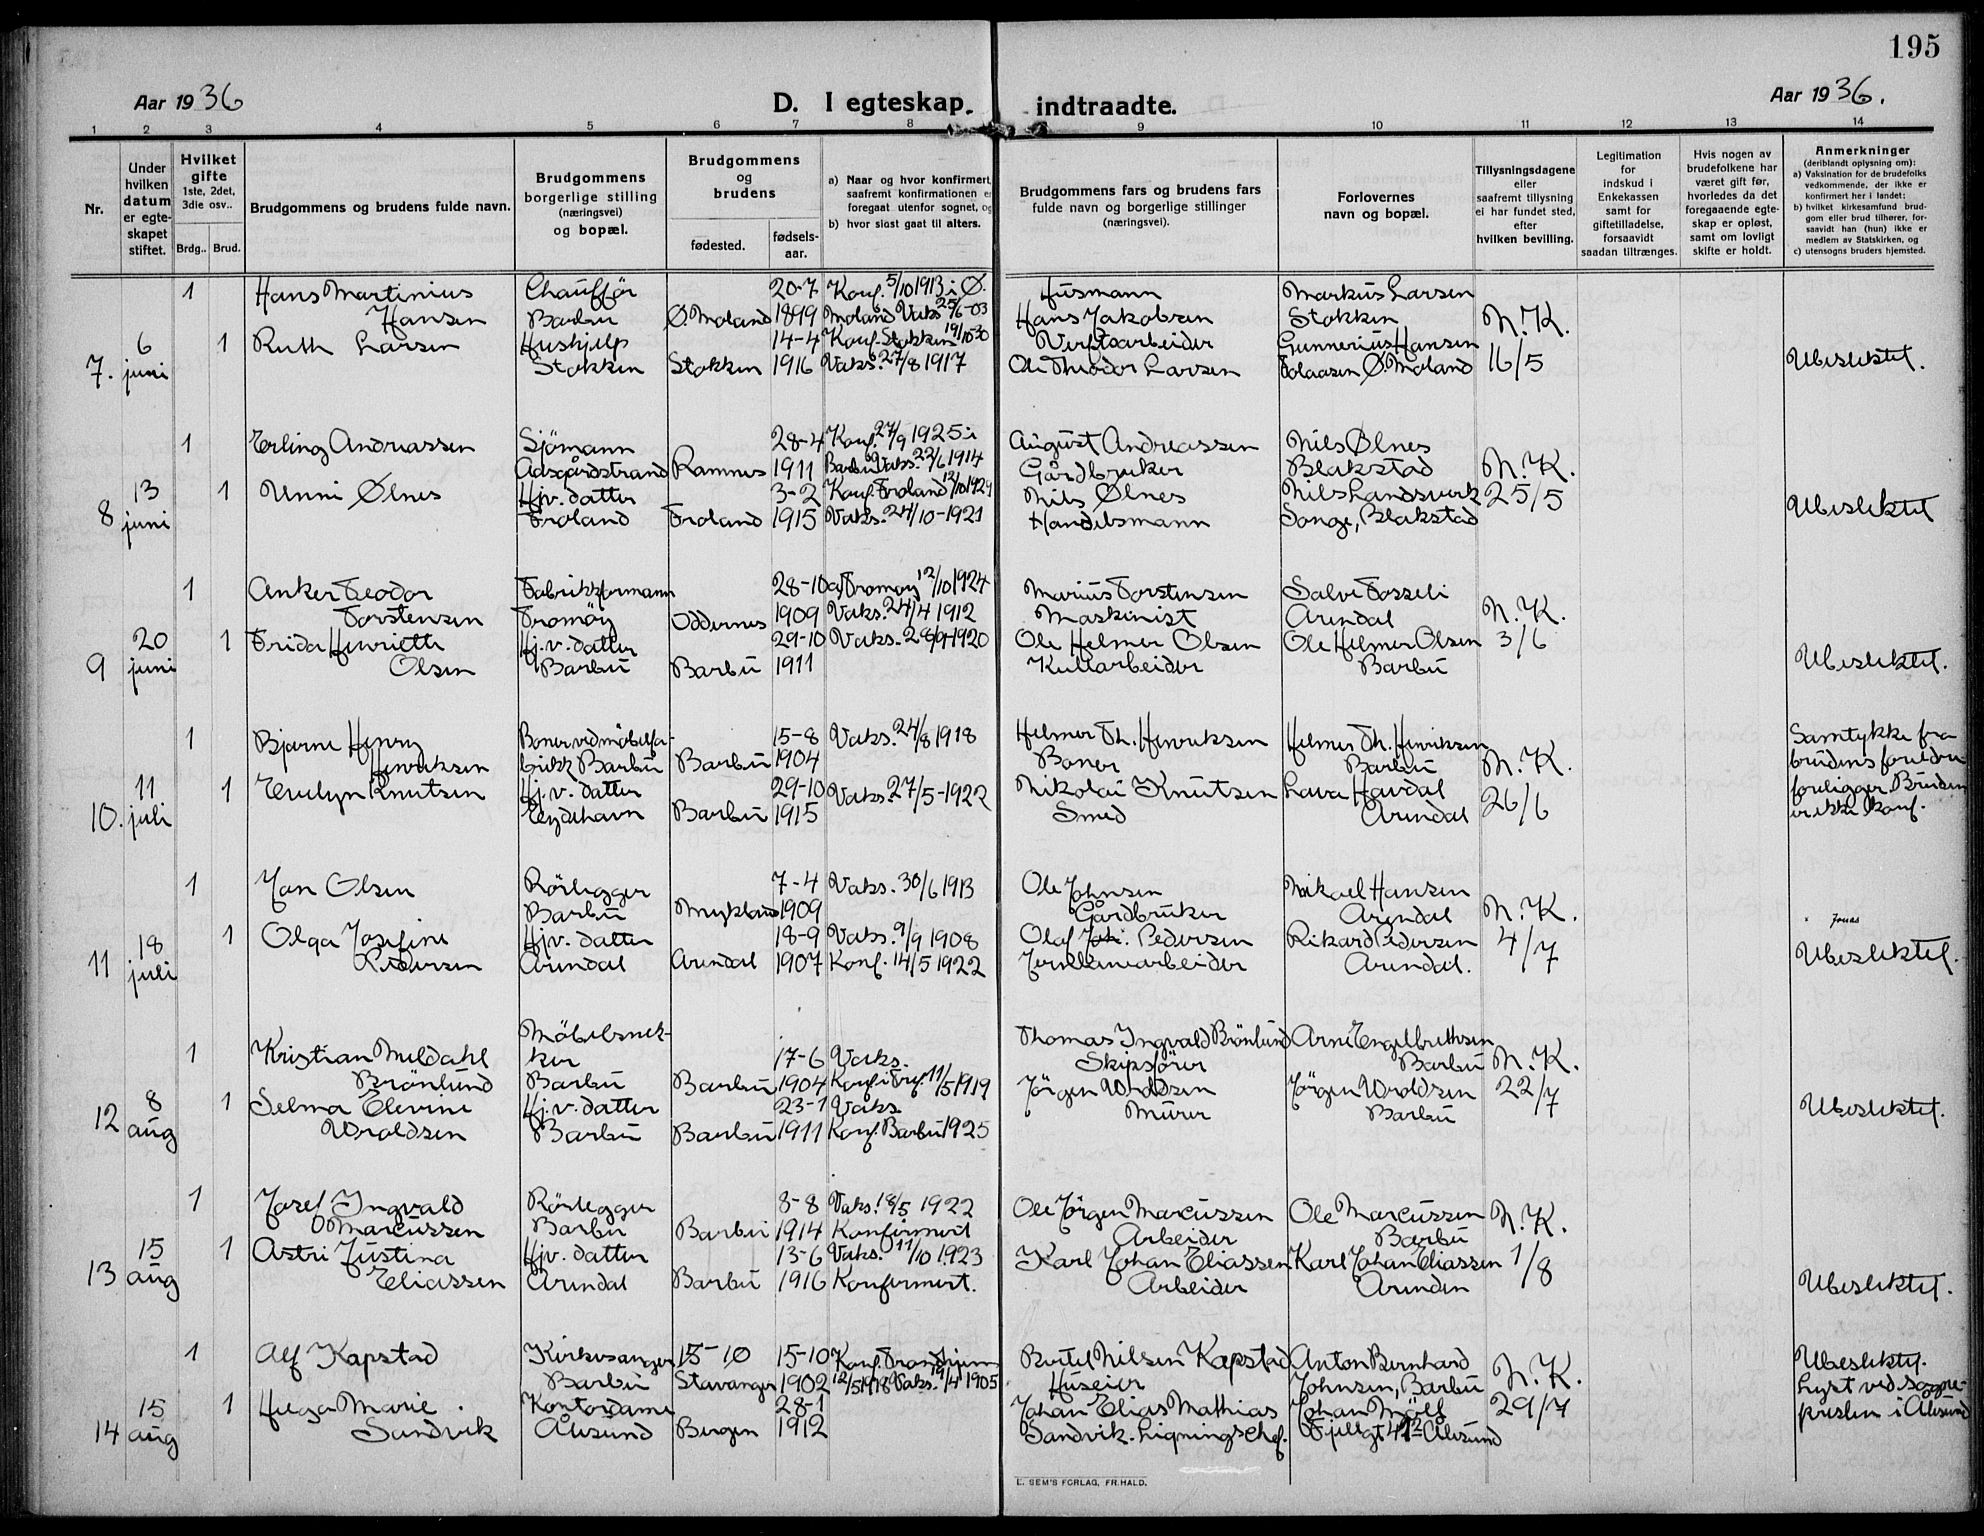 195
Aar 1936
D. I egteskap indtraadte.
Aar 1936.
1 2 3 4 5 6 7 8 9 10 11 12 13 14
Nr.
Under hvilken datum er egte-skapet stiftet.
Hvilket gifte
1ste, 2det, 3die osv..
Brdg.. Brud.
Brudgommens og brudens fulde navn.
Brudgommens borgerlige stilling (næringsvei) og bopæl.
Brudgommens og brudens
fødested. fødsels-aar.
a) Naar og hvor konfirmert,
saafremt konfirmationen
foregaat utenfor sognet,
b) hvor sidst gaat til alters.
Brudgommens fars og brudens fars
fulde navn og borgerlige stillinger
(næringsvei).
Forlovernes
navn og bopæl.
Tillysningsdagene
eller
saafremt tillysning
ei har fundet sted,
efter
hvilken bevilling.
Legitimation
for
indskud i
Enkekassen
samt for
giftetilladelse,
forsaavidt
saadan tiltrænges.
Hvis nogen av
brudefolkene har
været gift før,
hvorledes da det
foregaaende egte-
skap er opløst,
samt om lovligt
skifte er holdt.
Anmerkninger
(deriblandt oplysning om):
a) Vaksination for de brudefolks
vedkommende, der ikke er
konfirmert her i landet;
b) hvilket kirkesamfund brud-
gom eller brud tilhører, for-
saavidt han (hun) ikke er
medlem av Statskirken, og
c) utensogns bruders hjemsted.
1 Hans Martinius Chauffør 20-7 Konf. 5/10 1913 i Ø. Husmann Markus Larsen
Hansen Barbu Ø. Moland 1899 Moland Vaks 25/6-03 Hans Jakobsen Stokken N.K.
6 1 Ruth Larsen Hushjelp 14-4 Konf. Stokken 19/10-30 Verftsarbeider Gunnerius Hansen
7. juni Stokken Stokken 1916 Vaks. 27/8 1917 Ole Theodor Larsen Ø. Moland 16/5 Ubeslektet.
1 Erling Andreassen Sjömann 28-4 Konf. 27/9 1925 i August Andreassen Nils Ølnes
Aasgårdstrand Ramnes 1911 Barbu Vaks. 22/6 1914 Gårdbruker Blakstad N.K.
13 1 Unni Ølnes Hjv. datter 3-2 Konf. Froland 12/10 1929 Nils Ølnes Nils Landsverk 25/5
8 juni Froland Froland 1915 Vaks. 24/10-1921 Handelsmann Songe, Blakstad Ubeslektet
1 Anker Teodor Fabrikkformann 28-10 Tromøy 12/10 1924 Marius Torstensen Salve Fosseli
Torstensen Tromöy Oddernes 1909 Vaks. 24/4 1912 Maskinist Arendal N.K.
20 1 Frida Henriette Hj.v. datter 29-10 Vaks. 28/9-1920 Ole Helmer Olsen Ole Helmer Olsen 3/6
9 juni Olsen Barbu Barbu 1911 Kullarbeider Barbu Ubeslektet.
1 Bjarne Henry Boner ved möbelfa- 15-8 Vaks. 24/8 1918 Helmer Th. Henriksen Helmer Th. Henriksen Samtykke fra
Henriksen brikk Barbu Barbu 1904 Boner Barbu N.K. brudens foreldre
11 1 Evelyn Knutsen Hj.v. datter 29-10 Vaks. 27/5-1922 Nikolai Knutsen Lava Havdal foreligger. Bruden
10. juli Eydehavn Barbu 1915 Smed Arendal 26/6 er ikke konf.
1 Jon Olsen Rörlegger 7-4 Vaks. 30/6 1913 Ole Johnsen Mikael Hansen
Barbu Mykland 1909 Gårdbruker Arendal N.K.
18 1 Olga Josefine Hjv. datter 18-9 Vaks. 9/9 1908 Olaf Joh. Pedersen Rikard Pedersen 4/7 Jonas
11 juli Pedersen Arendal Arendal 1907 Konf. 14/5 1922 Jernbanearbeider Arendal. Ubeslektet.
Möbelsnek- Thomas Ingvald Brönlund Arne Engelbrethsen
1 Kristian Meldahl ker 17-6 Vaks. Skipsförer Barbu N.K.
Brönlund Barbu Barbu 1904 Konf. i Tref. 11/5 1919 Jörgen Vroldsen Jörgen Vroldsen 22/7
8 1 Selma Elevine Hj.v. datter 23-1 Vaks. Murer Barbu
12 aug Vroldsen Barbu Barbu 1911 Konf. Barbu 1925 Ubeslektet.
1 Josef Ingvald Rörlegger 8-8 Vaks. 18/5 1922 Ole Jörgen Marcussen Ole Marcussen
Marcussen Barbu Barbu 1914 Konfirmert Arbeider Barbu N.K.
15 1 Astri Justina Hjv. datter 13-6 Vaks. 11/10 1923 Karl Johan Eliassen Karl Johan Eliassen 1/8
13 aug Eliassen Arendal Barbu 1916 Konfirmert. Arbeider Arendal Ubeslektet.
1 Alf Kapstad Kirkesanger 15-10 15-10 Konf. Trondhjem Bertel Nilsen Kapstad Anton Bernhard Ubeslektet.
Barbu Stavanger 1902 12/5 1918 Vaks. 19/4 1905 Huseier Johnsen, Barbu N.K. Lyst ved sogne-
15 1 Helga Marie Kontordame 28-1 Johan Elias Mathias Johan 29/7 presten i Ålesund
14 aug Sandvik Ålesund Bergen 1912 Sandvik. Ligningschef. Fjellgt Ålesund
E. SEM'S FORLAG, FR.HALD.